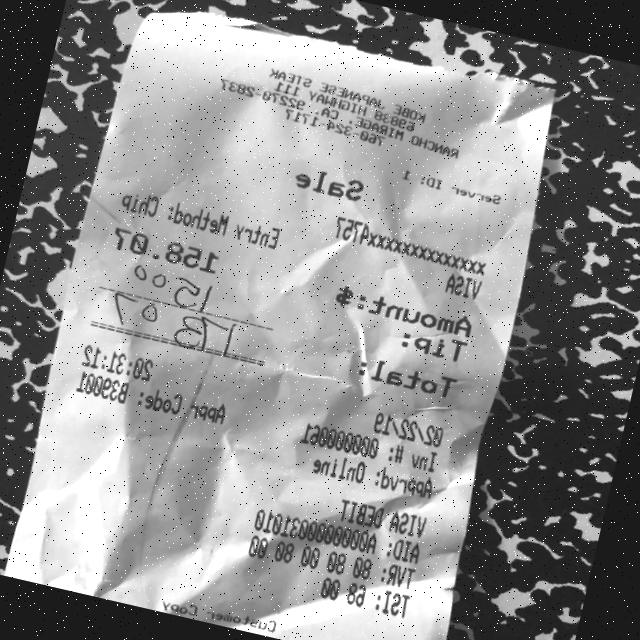 KOBE JAPANESE STEAK
69838 HIGHWAY 111
RANCHO MIRAGE, CA. 92270-2837
760-324-1717
Server ID: 1
Sale
xxxxxxxxxxxx4767
VISA Entry Method: Chip
Amount:$ 158.07
Tip: 15 00
Total: 173 07
02/22/19 20:31:12
Inv #: 00000061 Appr Code: B39001
Apprvd: Online
VISA DEBIT
AID: A0000000031010
TVR: 80 80 00 80 00
TSI: 68 00
Customer Copy